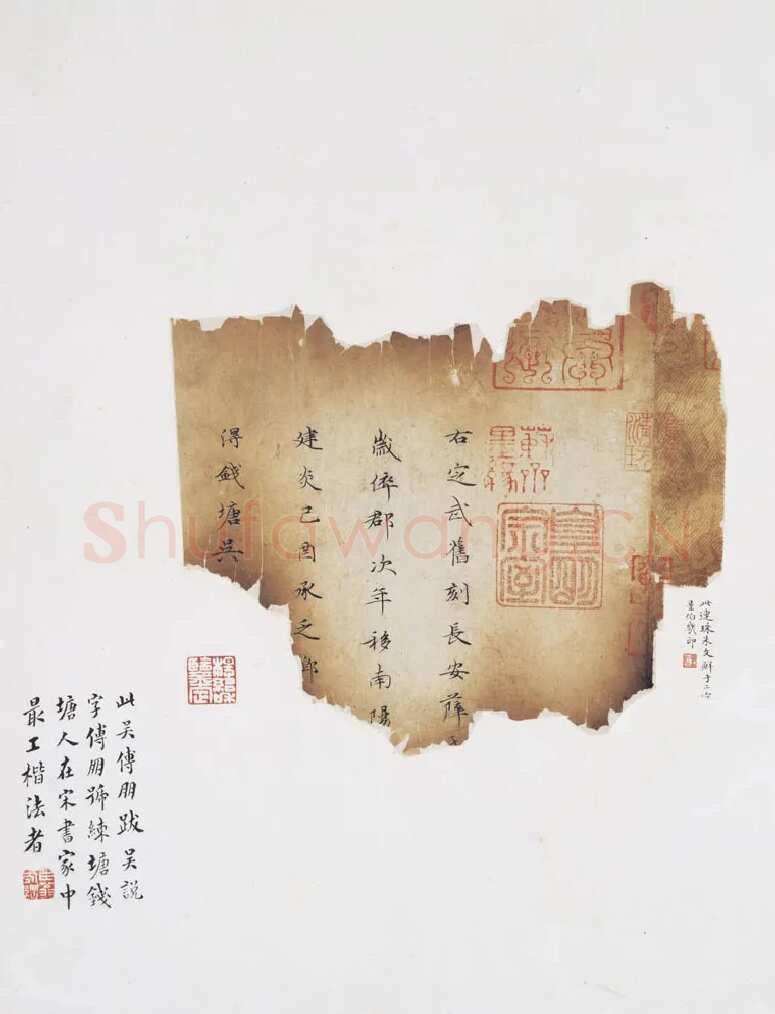 右定武舊刻長安薛
歲倅郡次年移南陽
建炎己酉承乏
得錢塘吳
此連珠朱文鮮于
是伯幾印
此吳傅朋跋吳說
字傅朋號練塘錢
塘人在宋書家中
最工楷法者
皇明
宗室
Shufawang.CN